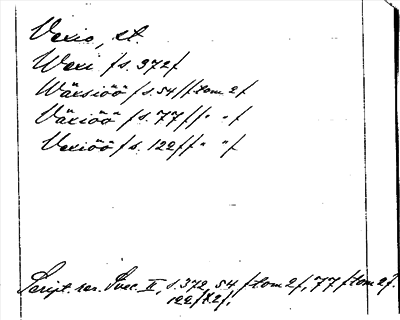 Vexio, st.
Wexi /s. 372/
Wäxsiöö /s. 54/ /tom 2/
Växiöö /s. 77/ /" "/
Vexiöö /s. 122/ /" "/
Script. rer. Svec. II, s. 372, 54 /tom 2/, 77 /tom 2/.
122/t.2/.